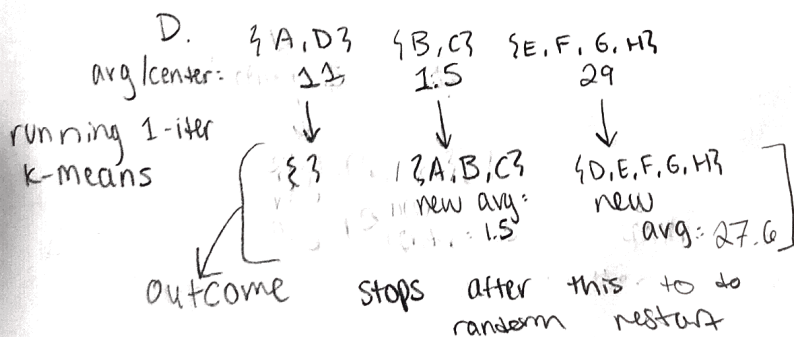 D. {A, D} {B, C} {E, F, G, H}
avg/center: 11 1.5 29
running 1-iter
k-means
{ } {A, B, C} {D, E, F, G, H}
new avg: new
1.5 avg: 27.6
outcome stops after this to do
random restart